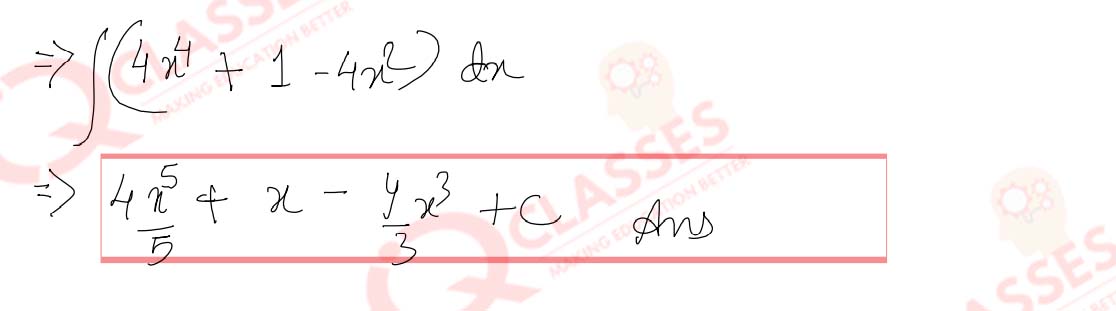 ⇒ ∫(4x⁴ + 1 - 4x²) dx
⇒ 4x⁵/5 + x - 4/3 x³ + C Ans
CLASSES
MAKING EDUCATION BETTER
CLASSES
MAKING EDUCATION BETTER
SSES